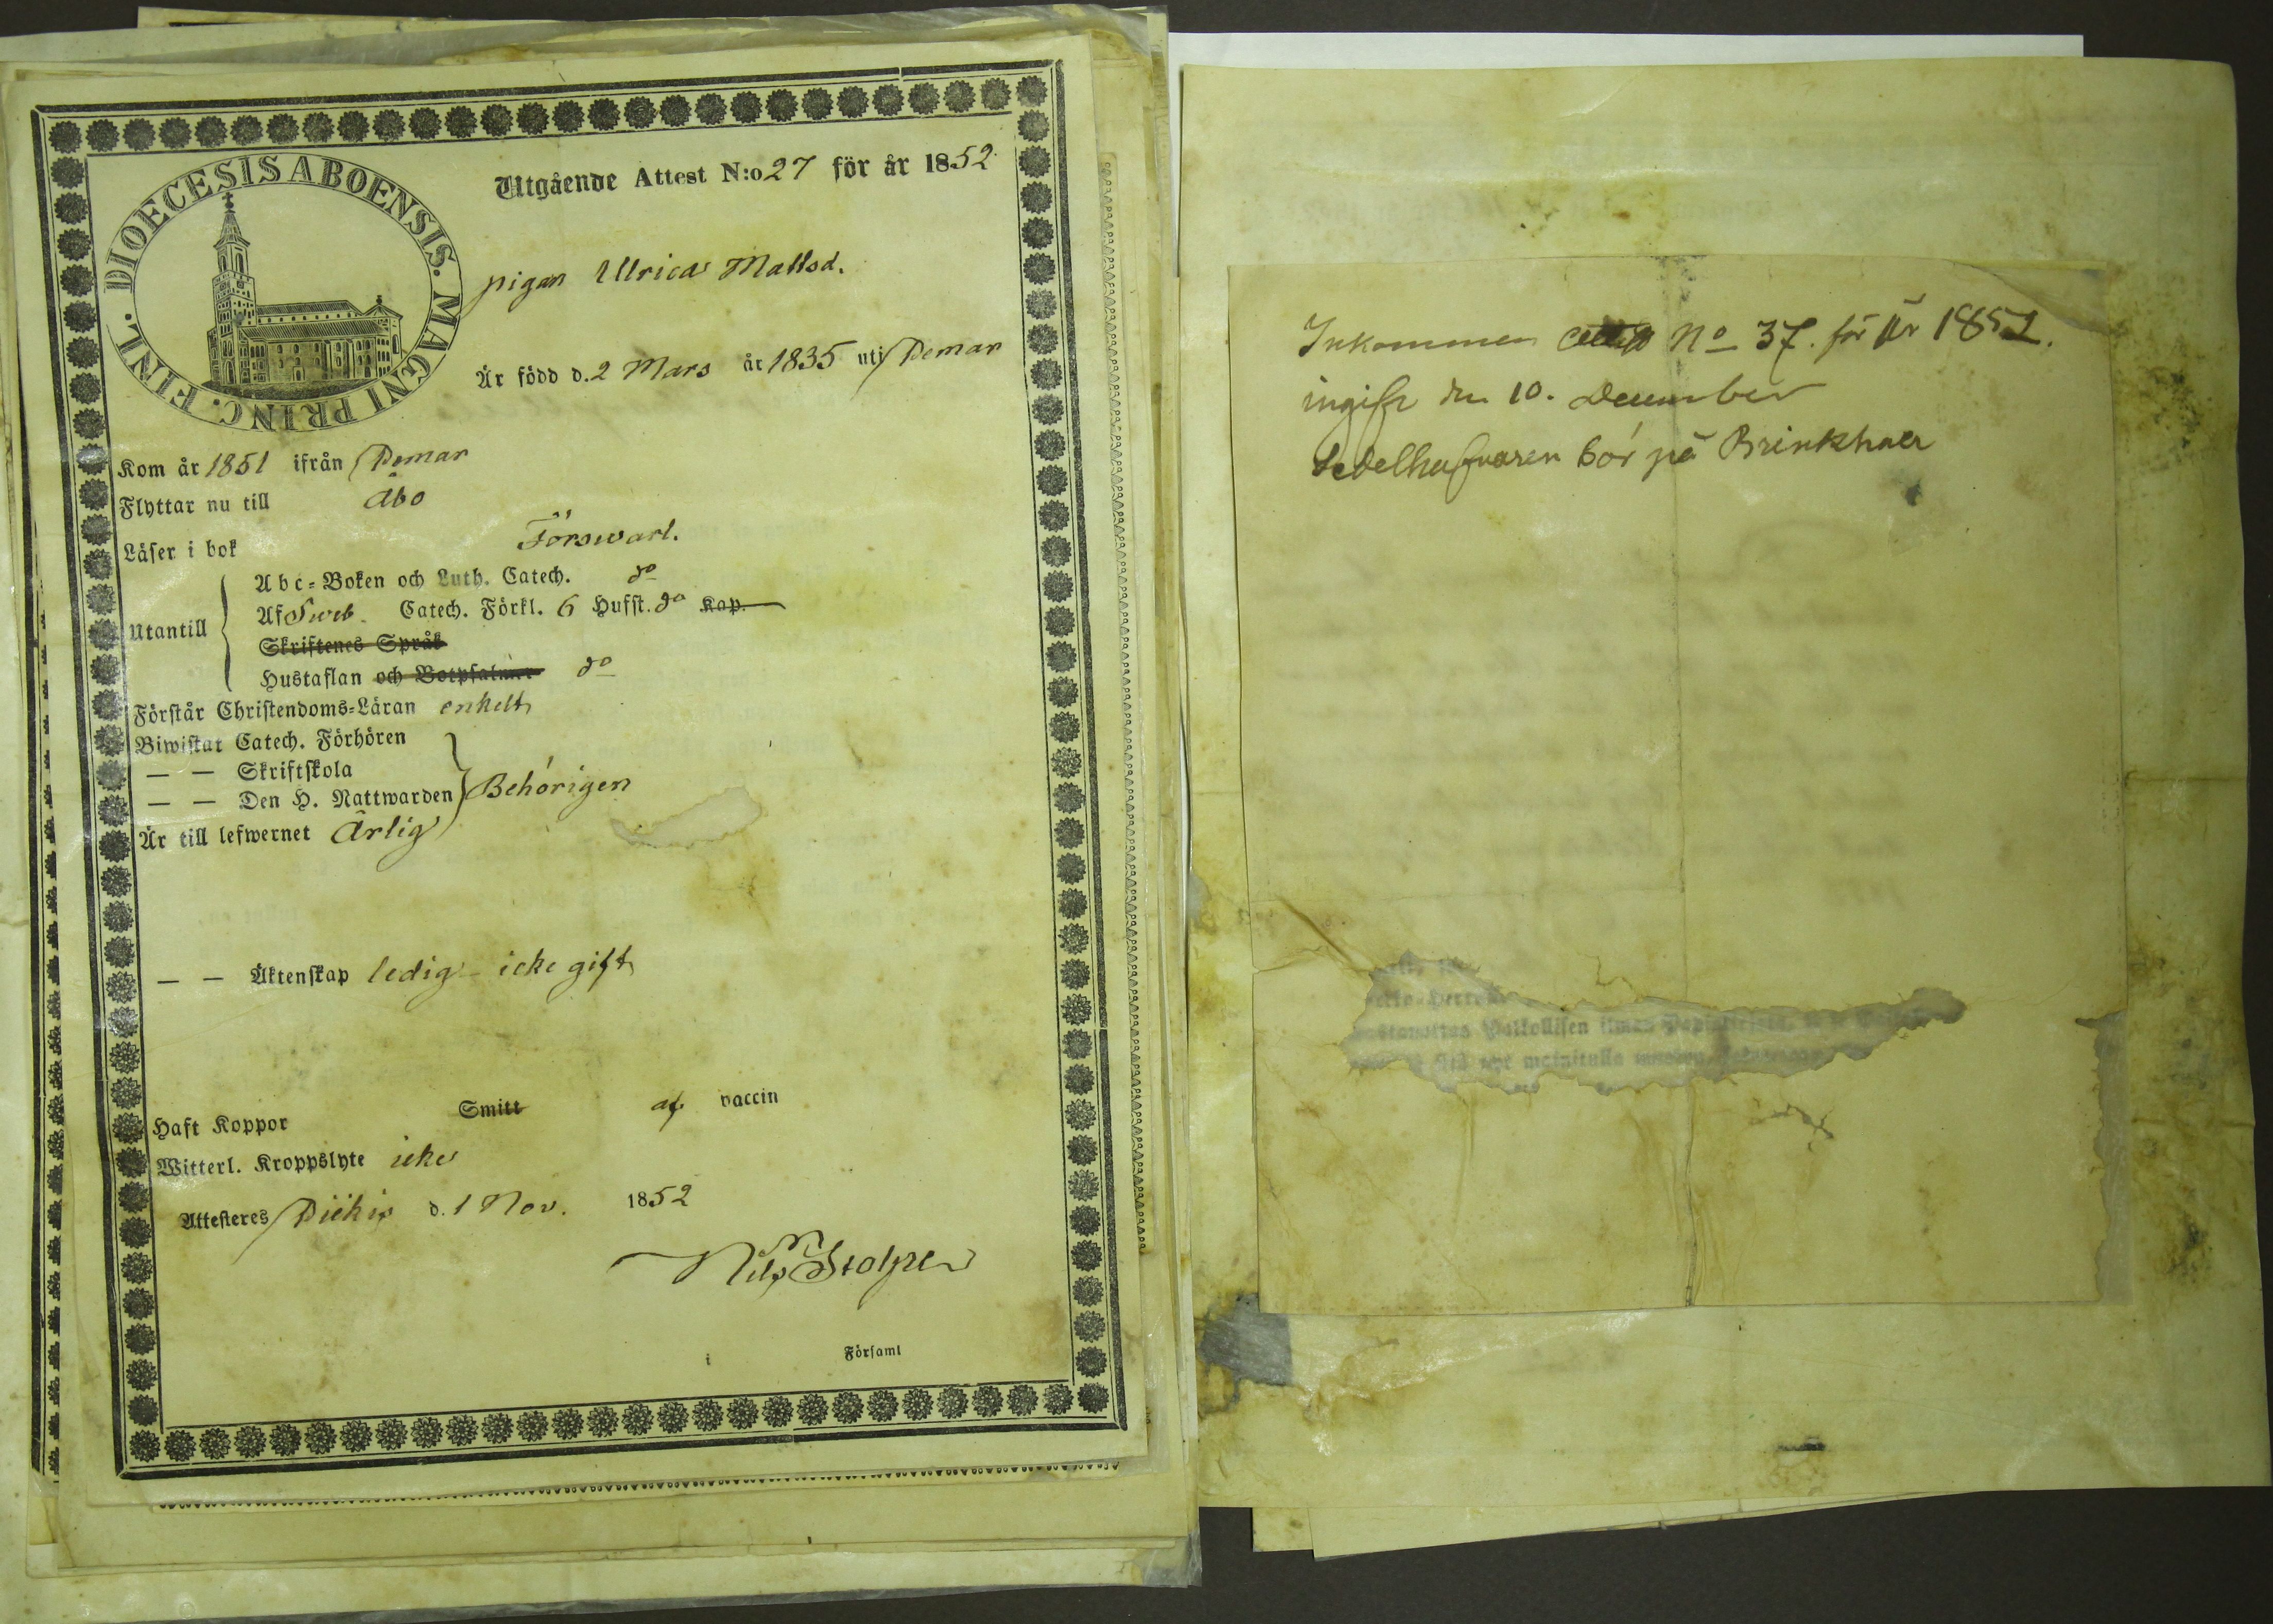 DIOECESIS ABOENSIS. MAGNI PRINC. FINL.
Utgående Attest N:o 27 för år 1852
pigan Ulrica Mattsd.
Är född d. 2 Mars år 1835 uti Pemar
Kom år 1851 ifrån Pemar
Flyttar nu till Åbo
Läser i bok Förswarl.
Utantill
Abc-Boken och Luth. Catech. do
Af Sweb. Catech. Förkl. 6 Hufst. do Kap.
Skriftenes Språk
Hustaflan och Botpsalmer do
Förstår Christendoms-Läran enkelt
Biwistat Catech. Förhören
— — Skriftskola
— — Den H. Nattwarden Behörigen
Är till lefwernet Ärlig
— — Äktenskap ledig - icke gift
Haft Koppor Smitt af vaccin
Witterl. Kroppslyte icke
Attesteres Piikis d. 1 Nov. 1852
Nils Stolpe
i Församl
Inkommen No 37. för År 1852.
ingift den 10. December
Sedelhafvaren bor på Brinkhall